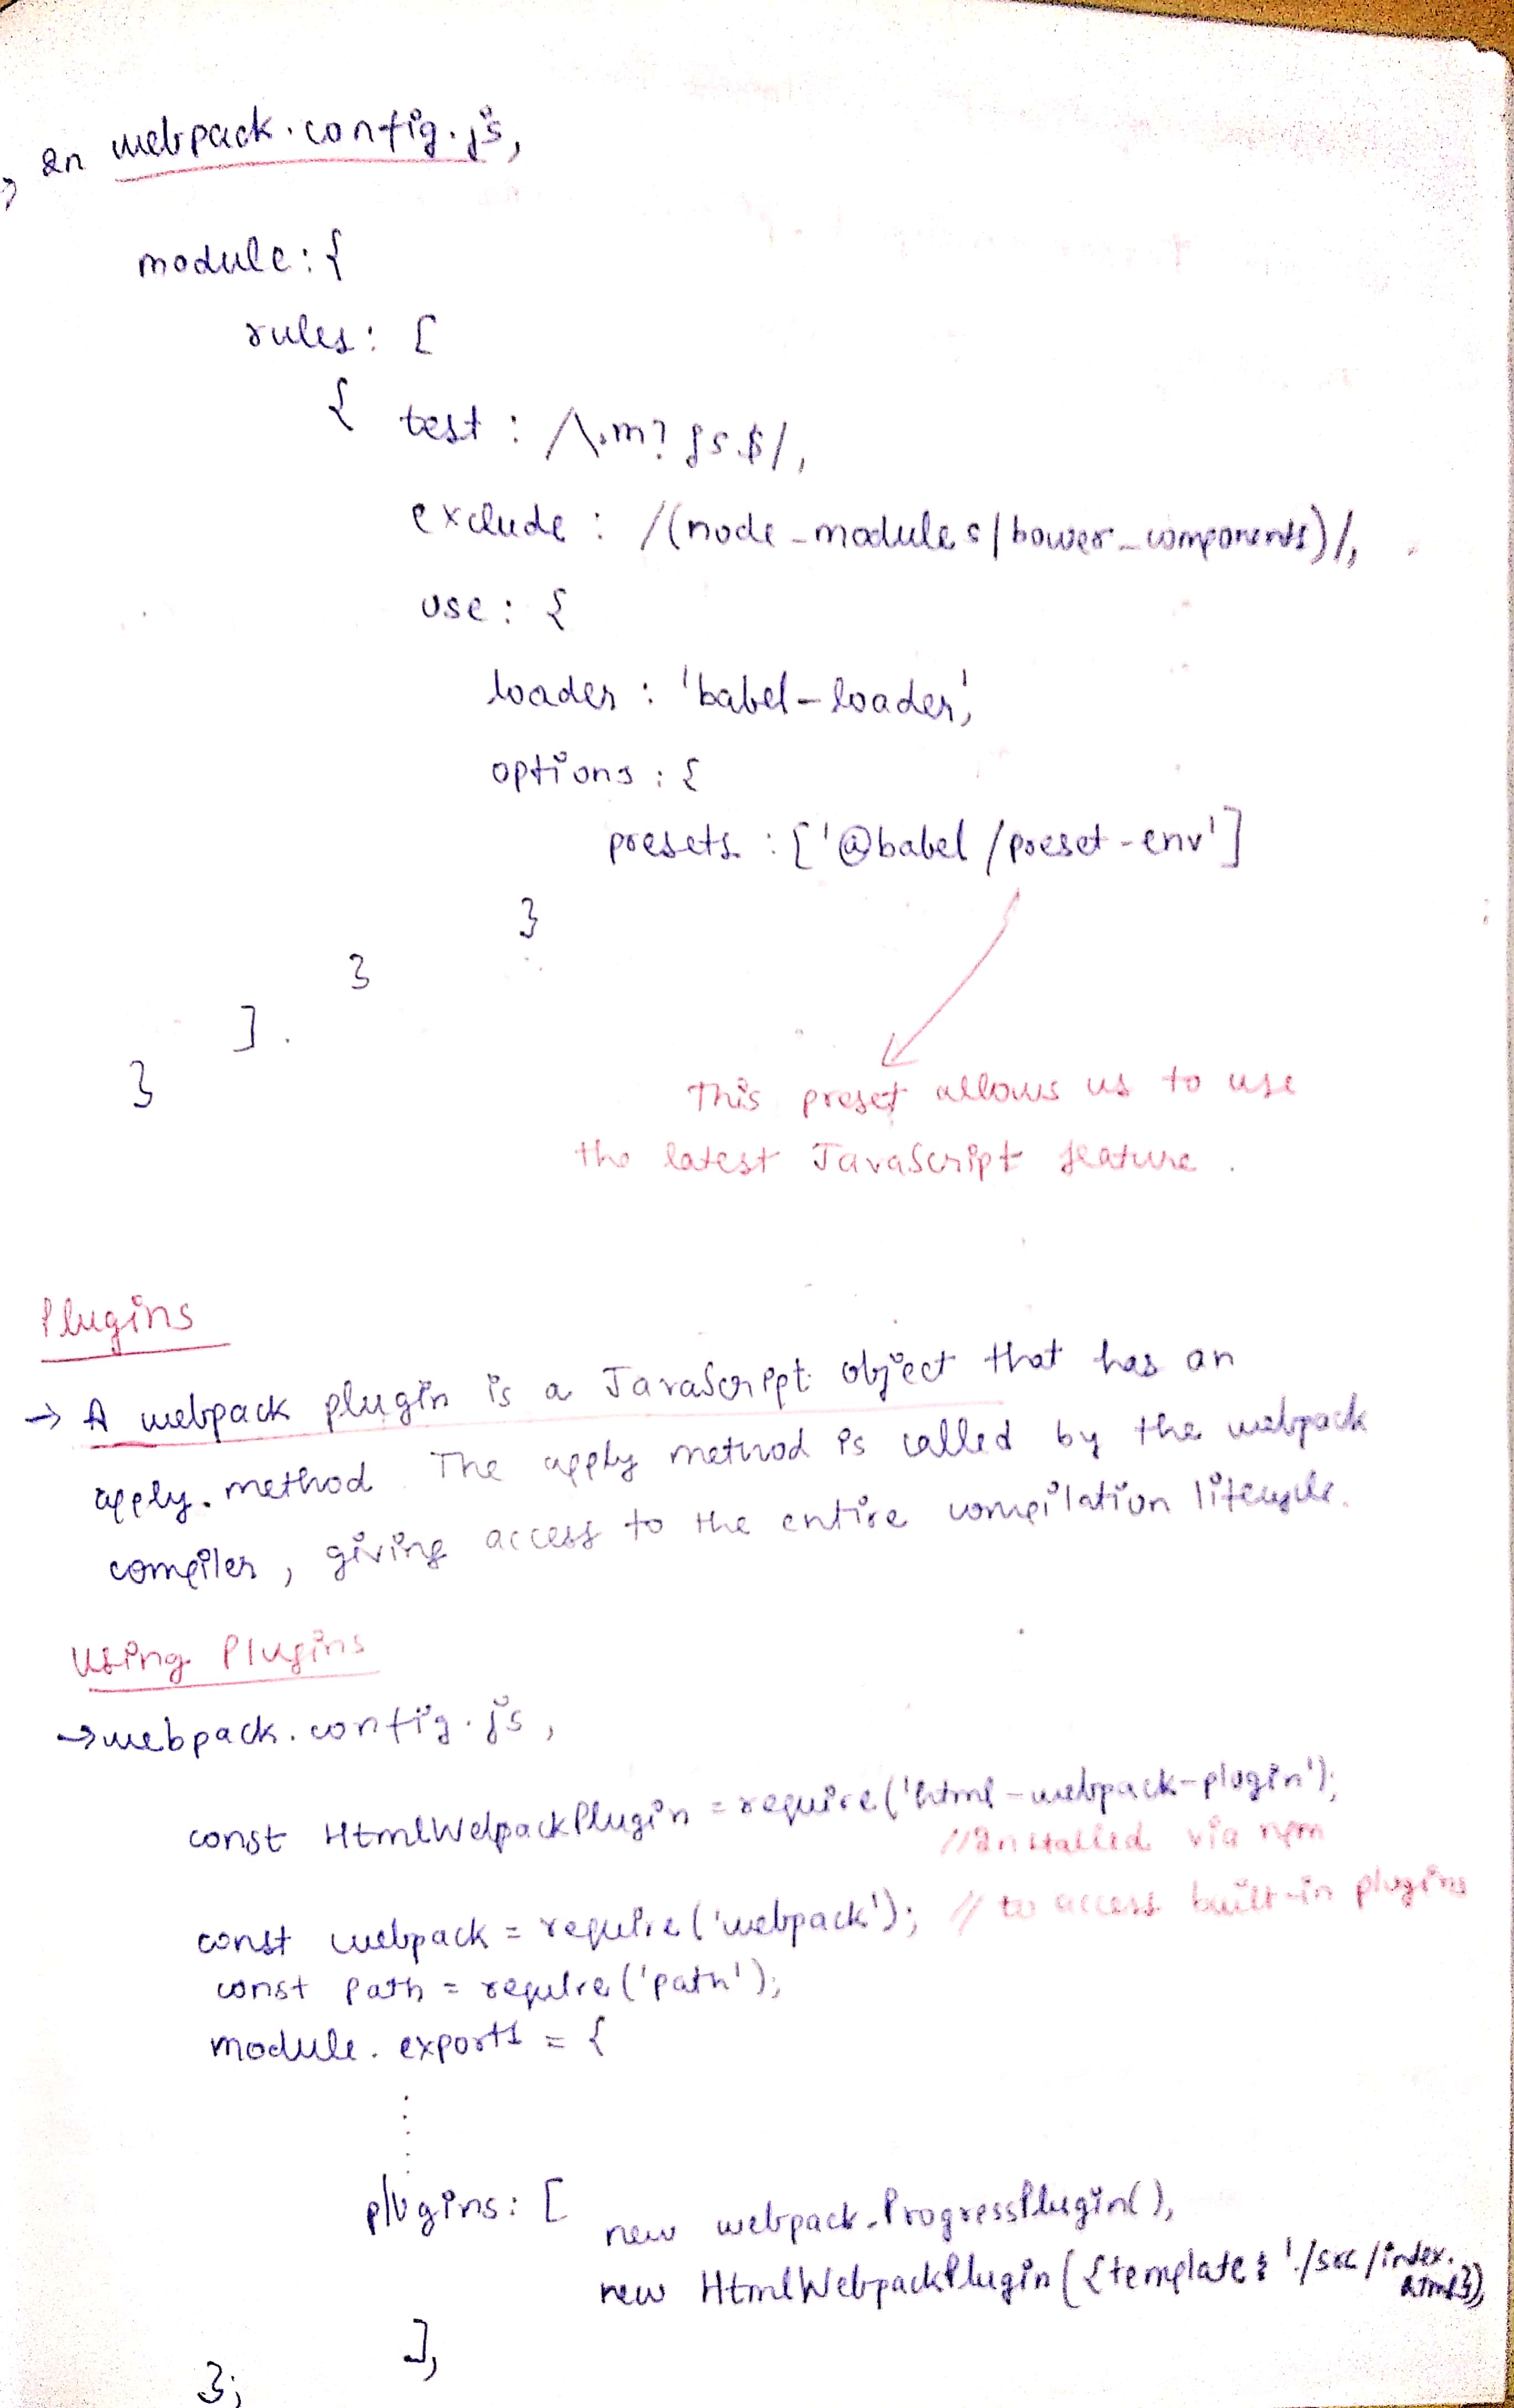 → In webpack.config.js,
module: {
rules: [
{ test: /\.m?js$/,
exclude: /(node_modules|bower_components)/,
use: {
loader: 'babel-loader',
options: {
presets: ['@babel/preset-env']
}
}
].
}
This preset allows us to use
the latest JavaScript feature.
Plugins
→ A webpack plugin is a JavaScript object that has an
apply method. The apply method is called by the webpack
compiler, giving access to the entire compilation lifecycle.
Using Plugins
→ webpack.config.js,
const HtmlWebpackPlugin = require('html-webpack-plugin');
//Installed via npm
const webpack = require('webpack'); // to access built-in plugins
const path = require('path');
module.exports = {
⋮
plugins: [
new webpack.ProgressPlugin(),
new HtmlWebpackPlugin({template: './src/index.
html'}),
],
};